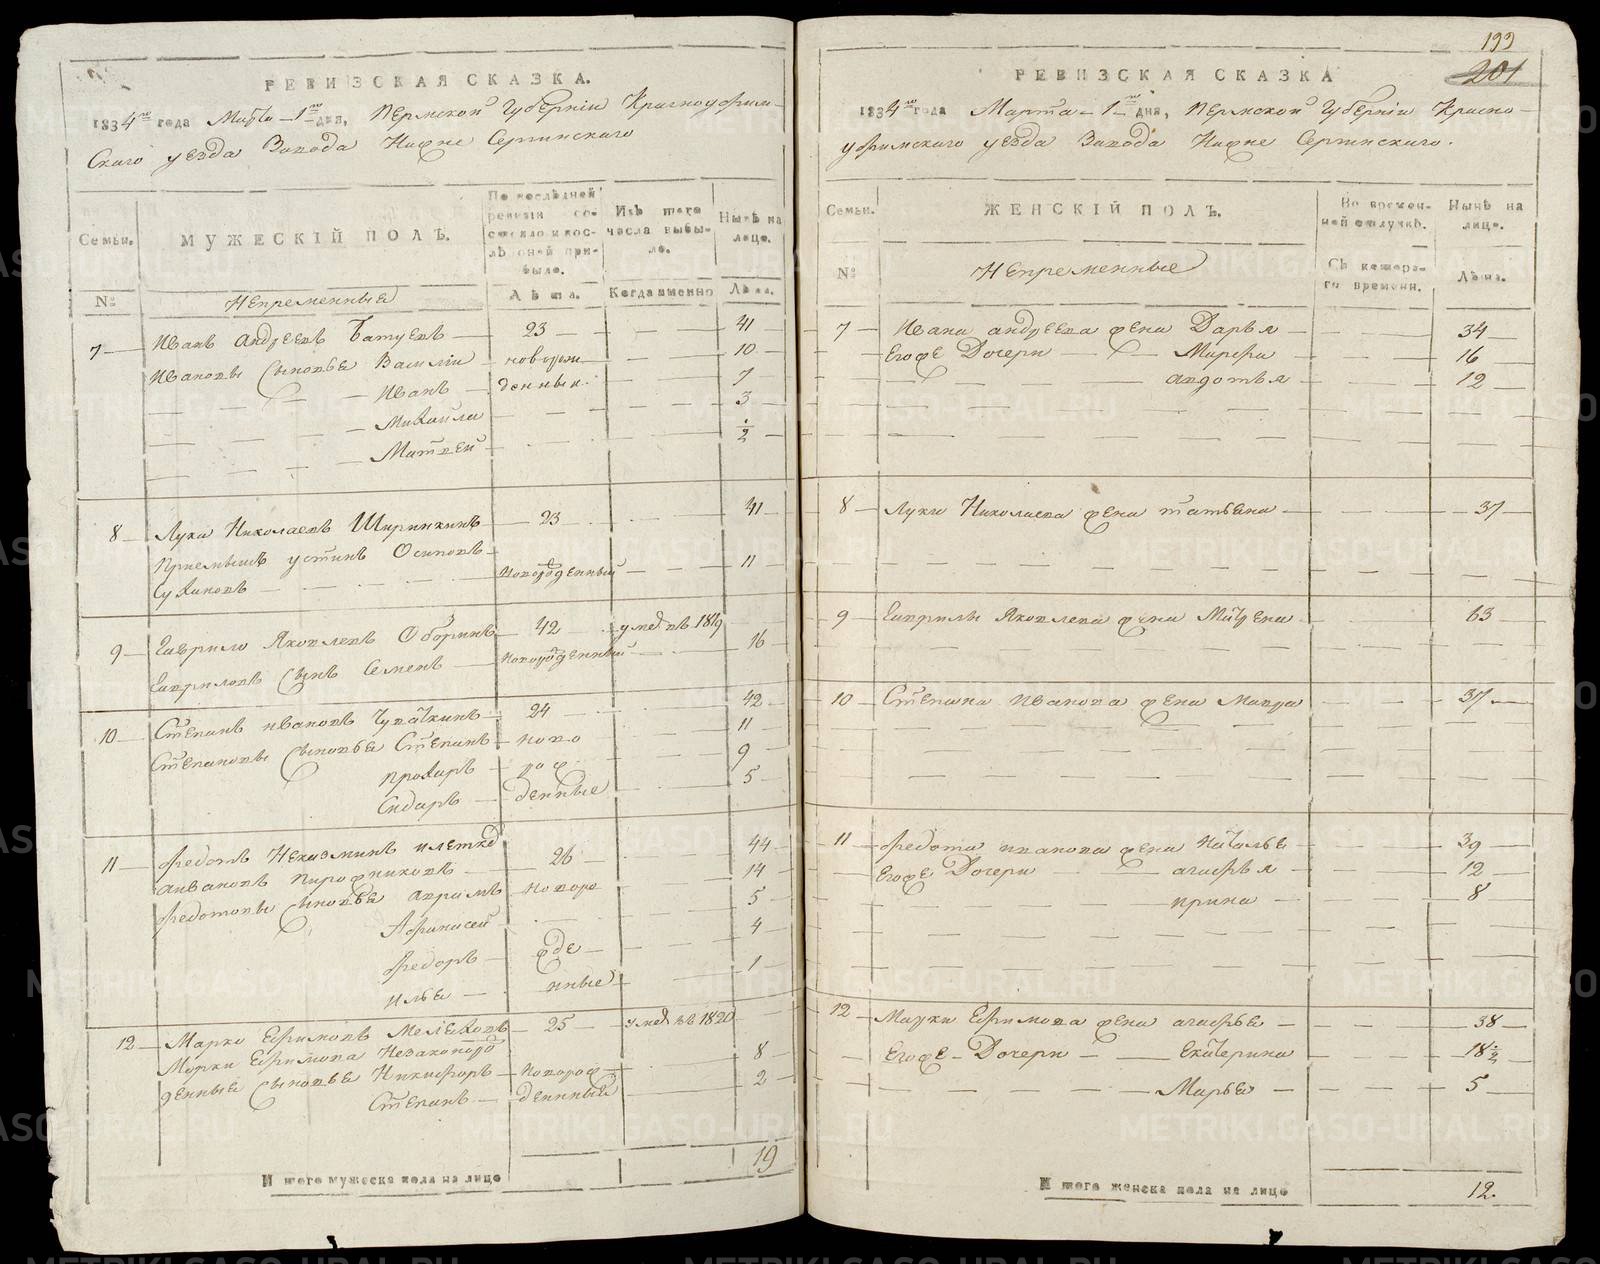 РЕВИЗСКАЯ СКАЗКА.
1834го года Марта 1го дня, Пермской Губерніи Красноуфим-
скаго уезда Завода Нижне Сергинскаго
Семьи.
МУЖЕСКІЙ ПОЛЪ.
По послѣдней ревизіи состояло и послѣ оной прибыло.
Изъ того числа выбыло.
Нынѣ на лицо.
№
Непременныя
Лѣта.
Когда именно
Лѣта.
7 Иванъ Андреевъ Батуевъ 23 41
Ивановы Сыновья Василіи новорож 10
Иванъ денныя. 7
Михайла 3
Матвей ½
8 Лука Николаевъ Ширинкинъ 23 41
Приемышъ устинъ Осиповъ Новорожденный 11
Сухановъ
9 Гаврило Яковлевъ Оборинъ 42 умер въ 1819
Гавриловъ Сынъ Семенъ Новорожденный 16
10 Степанъ ивановъ 24 42
Степановы Сыновья Степанъ ново 11
прохаръ рож 9
Сидаръ денные 5
11 Федотъ 26 44
Ивановъ Пирожниковъ 14
Федотовы Сыновья Аврамъ Новоро 5
Афонасей 4
Федоръ жде 1
илья нные
12 Марко Ефимовъ Мелеховъ 25 умер въ 1820
Марки Ефимова Незаконоро
денныя Сыновья Никифоръ Новорож 8
Степанъ денный 2
И того мужеска пола на лицо 19
199
201
РЕВИЗСКАЯ СКАЗКА
1834го года Марта 1го дня, Пермской Губерніи Красно-
уфимскаго уезда Завода Нижне Сергинскаго.
Семьи.
ЖЕНСКІЙ ПОЛЪ.
Во временной отлучкѣ.
Нынѣ на лицо.
№
Непременные
Съ котораго времени.
Лѣта.
7 Ивана андреева жена Дарья 34
Егоже Дочери Марфа 16
авдотья 12
8 Луки Николаева жена татьяна 37
9 Гаврилы Яковлева жена Матрена 63
10 Степана Иванова жена Мавра 37
11 Федота иванова жена Наталья 39
Егоже Дочери агафья 12
ирина 8
12 Марки Ефимова жена агафья 38
Егоже Дочери Екатерина 18½
Марья 5
И того женска пола на лицо 12.
METRIKI.GASO-URAL.RU